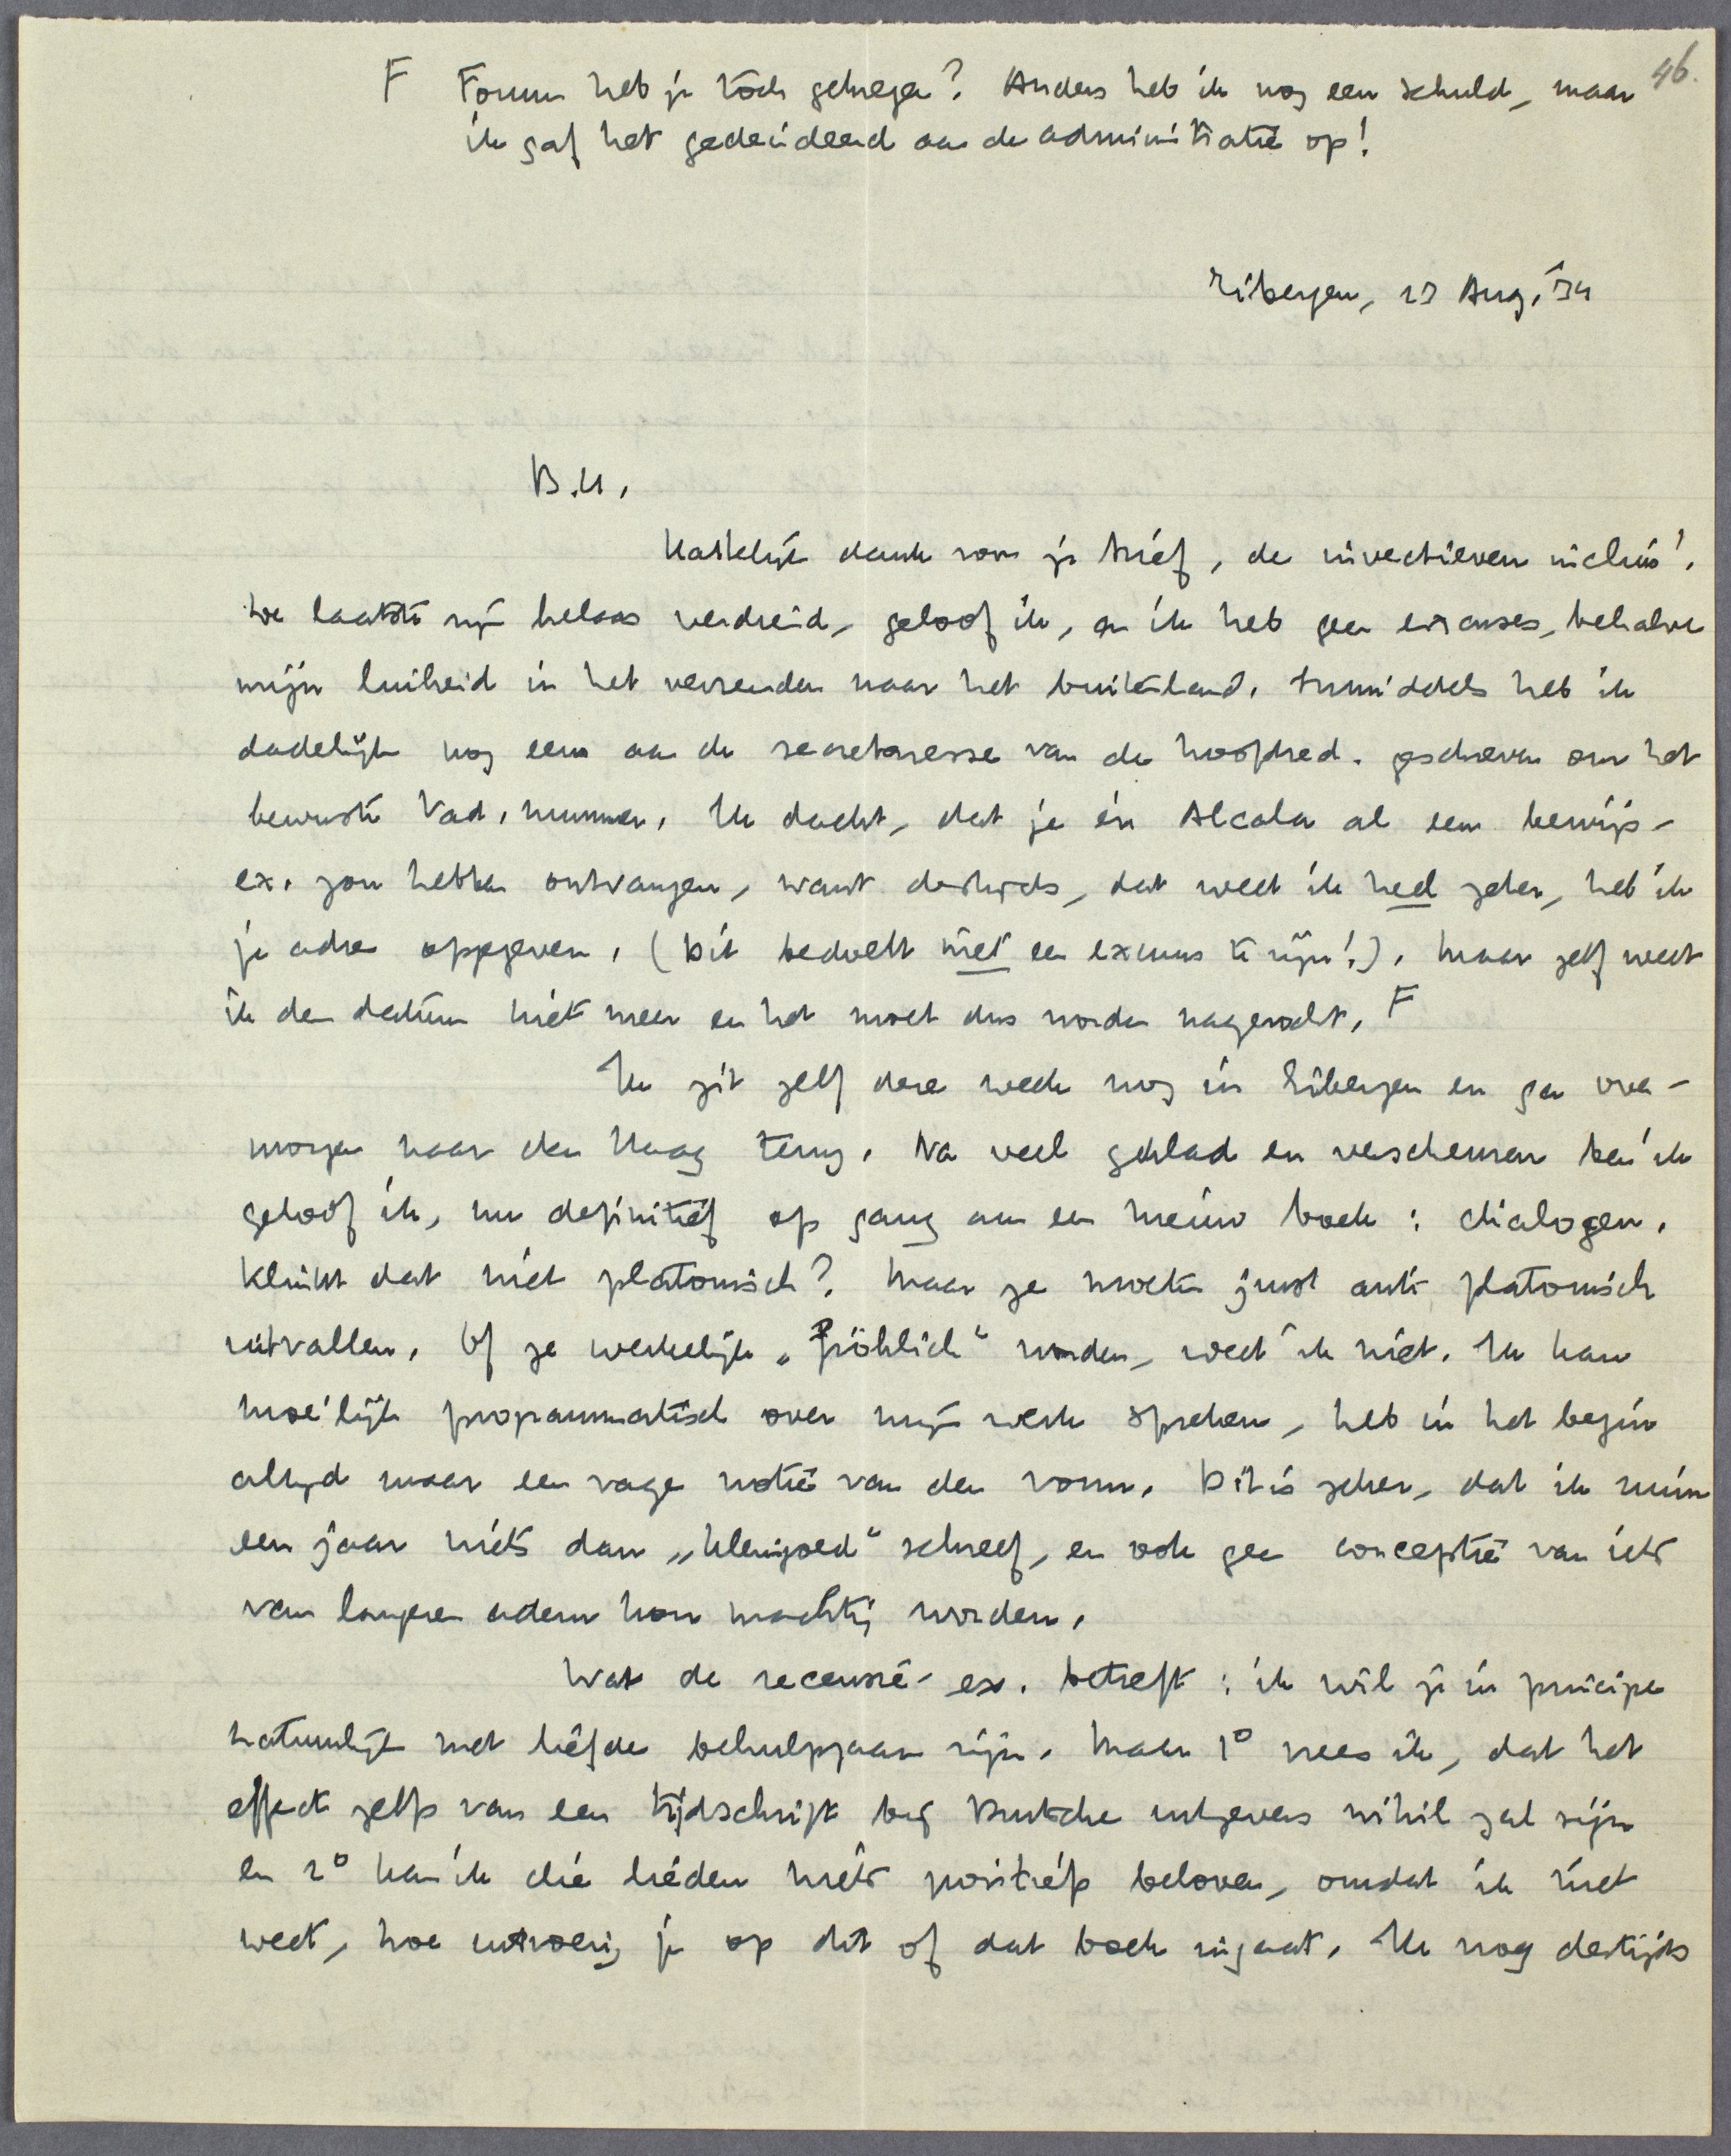 46.
F Forum heb je tòch gekregen? Anders heb ik nog een schuld, maar
ik gaf het gedecideerd aan de administratie op!
Eibergen, 23 Aug. '34
B.H.,
Hartelijk dank voor je brief, de invectieven incluis!
De laatste zijn helaas verdiend, geloof ik, en ik heb geen excuses, behalve
mijn luiheid in het verzenden naar het buitenland. Inmiddels heb ik
dadelijk nog eens aan de secretaresse van de hoofdred. geschreven om het
bewuste Vad. nummer. Ik dacht, dat je in Alcala al een bewijs-
ex. zou hebben ontvangen, want destijds, dat weet ik heel zeker, heb ik
je adres opgegeven. (Dit bedoelt niet een excuus te zijn!). Maar zelf weet
ik den datum niet meer en het moet dus worden nagezocht. F
Ik zit zelf deze week nog in Eibergen en ga over-
morgen naar den Haag terug. Na veel geklad en verscheuren ben ik
geloof ik, nu definitief op gang aan een nieuw boek: dialogen.
Klinkt dat niet platonisch? Maar ze moeten juist anti platonisch
uitvallen. Of ze werkelijk „fröhlich" worden, weet ik niet. Ik kan
moeilijk programmatisch over mijn werk spreken, heb in het begin
altijd maar een vage notie van den vorm. Dit is zeker, dat ik ruim
een jaar niets dan „kleingoed" schreef, en ook geen conceptie van iets
van langeren adem kon machtig worden.
Wat de recensie-ex. betreft: ik wil je in principe
natuurlijk met liefde behulpzaam zijn. Maar 1° vrees ik, dat het
effect zelfs van een tijdschrift bij Duitsche uitgevers nihil zal zijn
en 2° kan ik die lieden niets positiefs beloven, omdat ik niet
weet, hoe uitvoerig je op dit of dat boek ingaat. Ik nog destijds